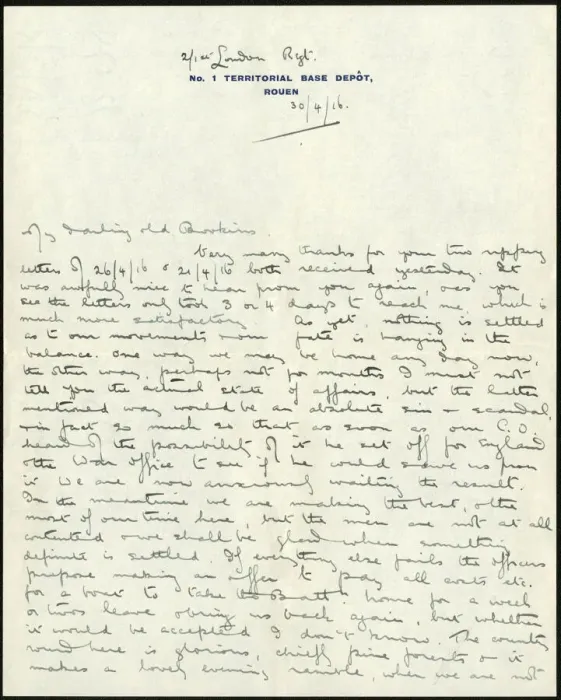 2/1st London Regt.
No. 1 TERRITORIAL BASE DEPÔT,
ROUEN
30/4/16.
My darling old Bookins.
Very many thanks for your two ripping
letters of 26/4/16 & 21/4/16 both received yesterday. It
was awfully nice to hear from you again, & as you
see the letters only took 3 or 4 days to reach me, which is
much more satisfactory. As yet, nothing is settled
as to our movements & our fate is hanging in the
balance. One way we may be home any day now,
the other way, perhaps not for months. I must not
tell you the actual state of affairs, but the latter
mentioned way would be an absolute sin & scandal,
in fact so much so that as soon as our C.O.
heard of the possibility of it he set off for England
& the War Office to see if he could save us from
it. We are now anxiously waiting the result.
In the meantime we are making the best, & the
most of our time here, but the men are not at all
contented & we shall be glad when something
definite is settled. If everything else fails the officers
propose making an offer to pay all costs etc.
for a boat to take the Batt. home for a week
or two's leave & bring us back again, but whether
it would be accepted I don't know. The country
round here is glorious, chiefly pine forests & it
makes a lovely evening ramble, when we are not